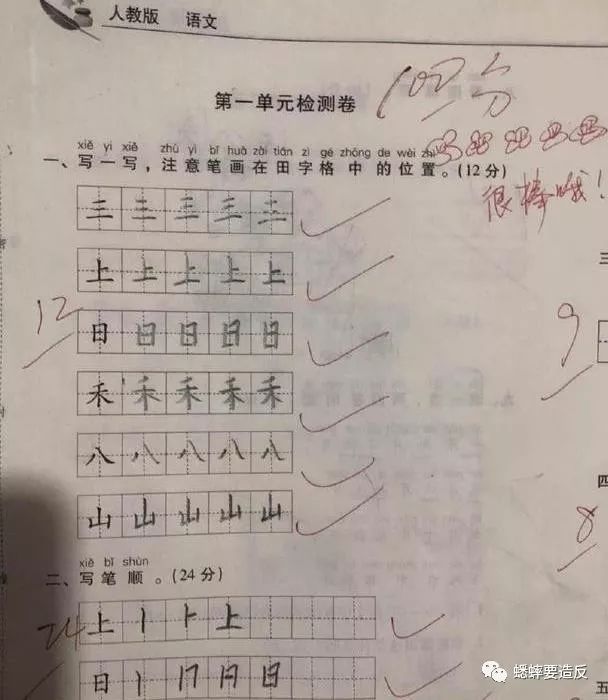 人教版 语文
第一单元检测卷 100分
xiě yi xiě zhù yì bǐ huà zài tián zì gé zhōng de wèi zhi
一、写一写，注意笔画在田字格中的位置。(12分)
很棒哦！
三 三 三 三 三
上 上 上 上 上
12
日 日 日 日 日
禾 禾 禾 禾 禾
八 八 八 八 八
山 山 山 山 山
xiě bǐ shùn
二、写笔顺。(24分)
24
上 丨 ⺊ 上
日 丨 冂 月 日
三
9
四
8
五
蟋蟀要造反